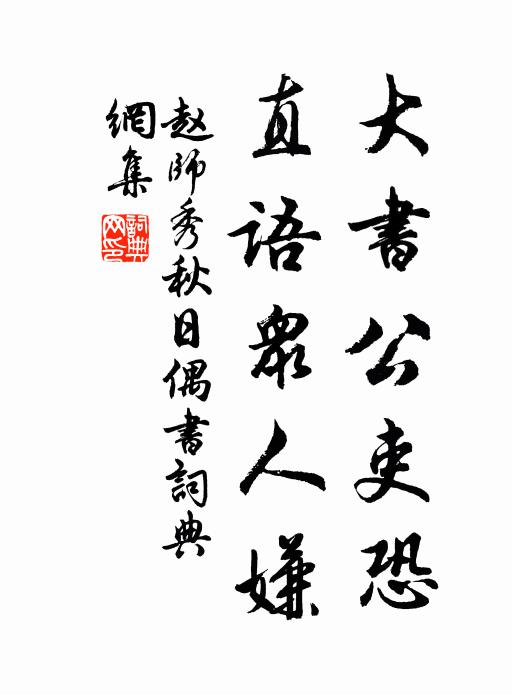 大書公吏恐
直語眾人嫌
赵師秀秋日偶書詞典
網集
詞典
网印